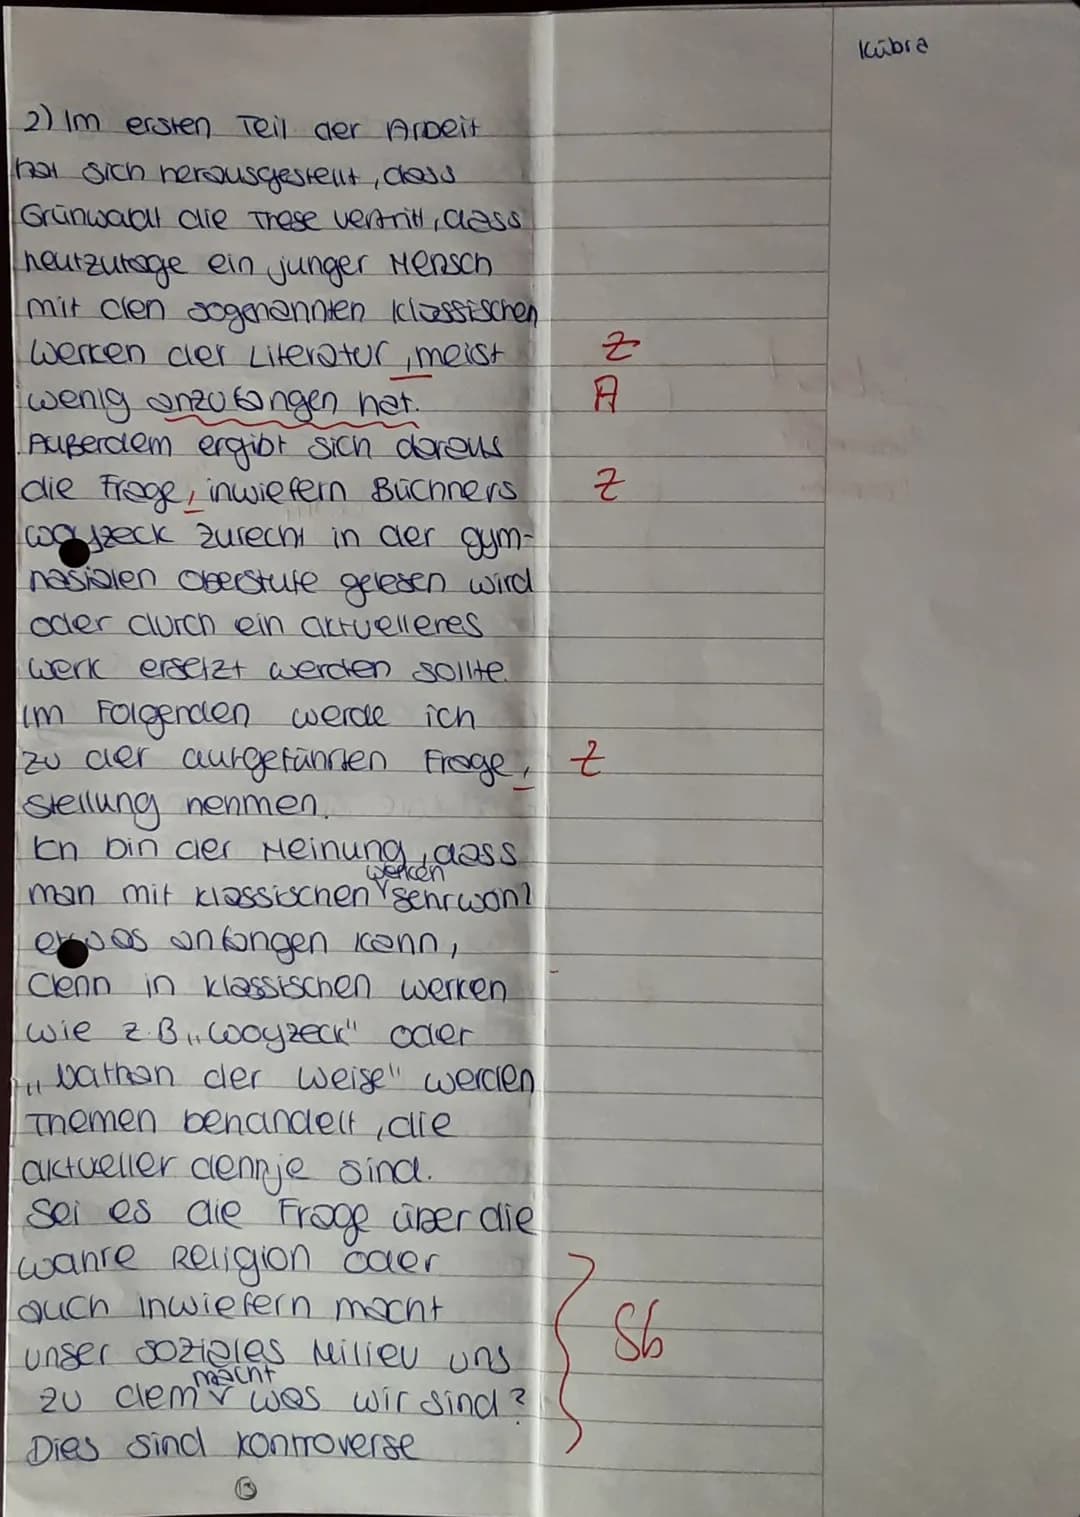 Kübra
2) Im ersten Teil der Arbeit
hat sich herausgestellt, dass
Grünwald die These vertritt, dass
heutzutage ein junger Mensch
mit den sogenannten klassischen
Werken der Literatur, meist
Z
wenig anzufangen hat.
A
Außerdem ergibt sich daraus
die Frage, inwiefern Büchners
Z
Woyzeck zurecht in der gym-
nasialen Oberstufe gelesen wird
oder durch ein aktuelleres
Werk ersetzt werden sollte.
Im Folgenden werde ich
zu der aufgeführten Frage,
Z
Stellung nehmen.
Ich bin der Meinung, dass
werken
man mit klassischen sehr wohl
etwas anfangen kann,
denn in klassischen Werken
wie z.B „Woyzeck" oder
„Nathan der Weise" werden
Themen behandelt, die
aktueller denn je sind.
Sei es die Frage über die
wahre Religion oder
auch inwiefern macht
Sb
unser soziales Milieu uns
macht
zu dem was wir sind?
Dies sind kontroverse
13